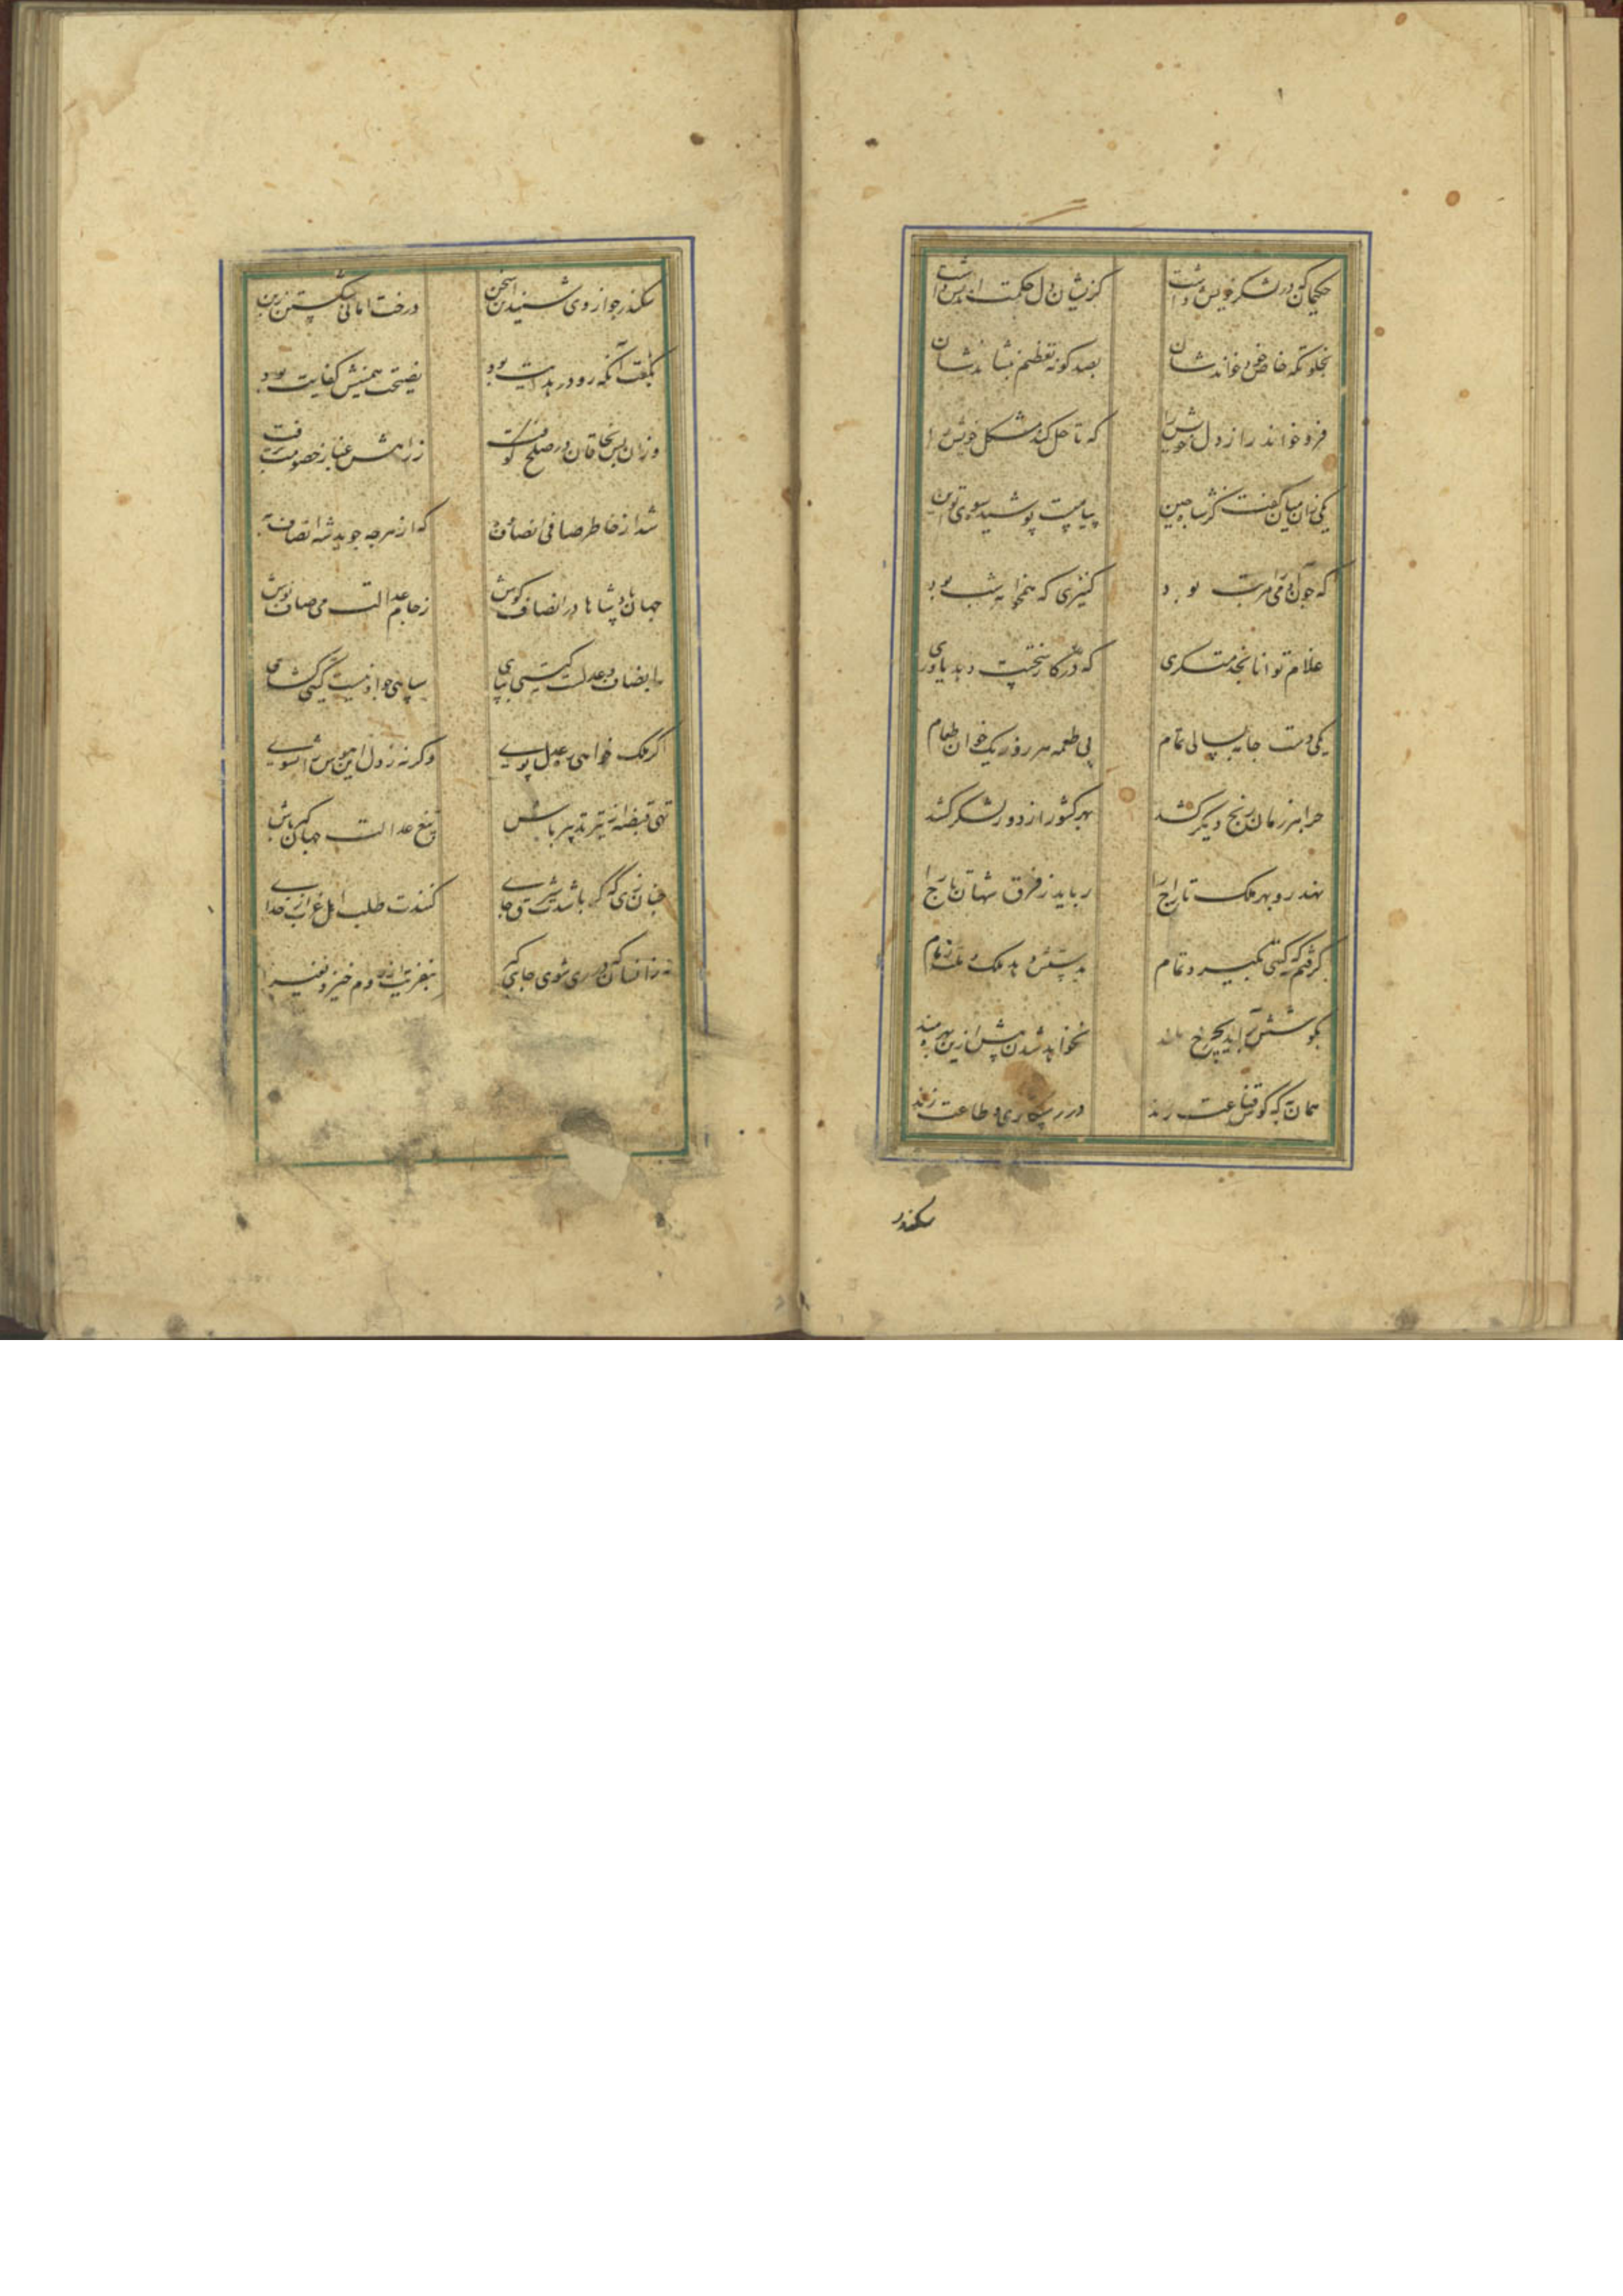 حکیمان که در لشکر خویش داشت کزیشان دل حکمت اندیش داشت
بخلوتگه خاص خود خواندشان بصد گونه تعظیم بنشاندشان
فرو خواند راز دل خویش را که تا حل کند مشکل خویش را
یکی زان میان گفت کز شاه چین پیامیست پوشیده سوی تو این
که چون آدمی را مرتب بود کنیزی که همخوابه شب بود
غلام توانا بخدمتگری که در کار سختت دهد یاوری
یکی دست جامه بسالی تمام پی طعمه هر روز یک خوان طعام
چرا هر زمان رنج دیگر کشد بهر کشور از دور لشکر کشد
نهد رو بهر ملک تاراج را رباید ز فرق شهان تاج را
گرفتم که گیتی بگیرد تمام بدستش دهد ملک و ملت زمام
بکوشش برآید بچرخ بلند نخواهد شدن بیش ازین بهره‌مند
همان به که کوس قناعت زند در رستگاری و طاعت زند
سکندر
سکندر چو از وی شنید این سخن درخت امانی شکستش ز بن
بگفت آنکه رو در هدایت بود نصیحت همینش کفایت بود
وزان پس بخاقان در صلح کوفت ز راهش غبار خصومت بروفت
شد از خاطر صافی انصاف ده که از هر چه جوید شه انصاف به
جهان پادشاها در انصاف کوش ز جام عدالت می صاف نوش
بانصاف و عدلست گیتی بپای سپاهی چو او نیست گیتی گشای
اگر ملک خواهی ره عدل پوی وگرنه ز دل این هوس را بشوی
تهی قبضه از تیر تدبیر باش بتیغ عدالت جهانگیر باش
چنان زی که گر باشدت شرق جای کنندت طلب اهل غرب از خدای
نه زانسان که در ری شوی جای‌گیر بنفرینت از روم خیزد نفیر